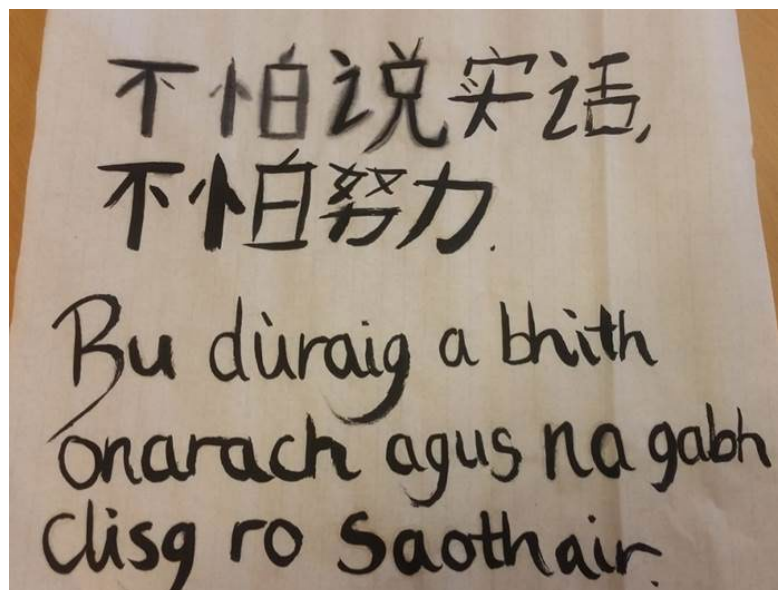 不怕说实话,
不怕努力.
Bu dùraig a bhith
onarach agus na gabh
clisg ro saothair.